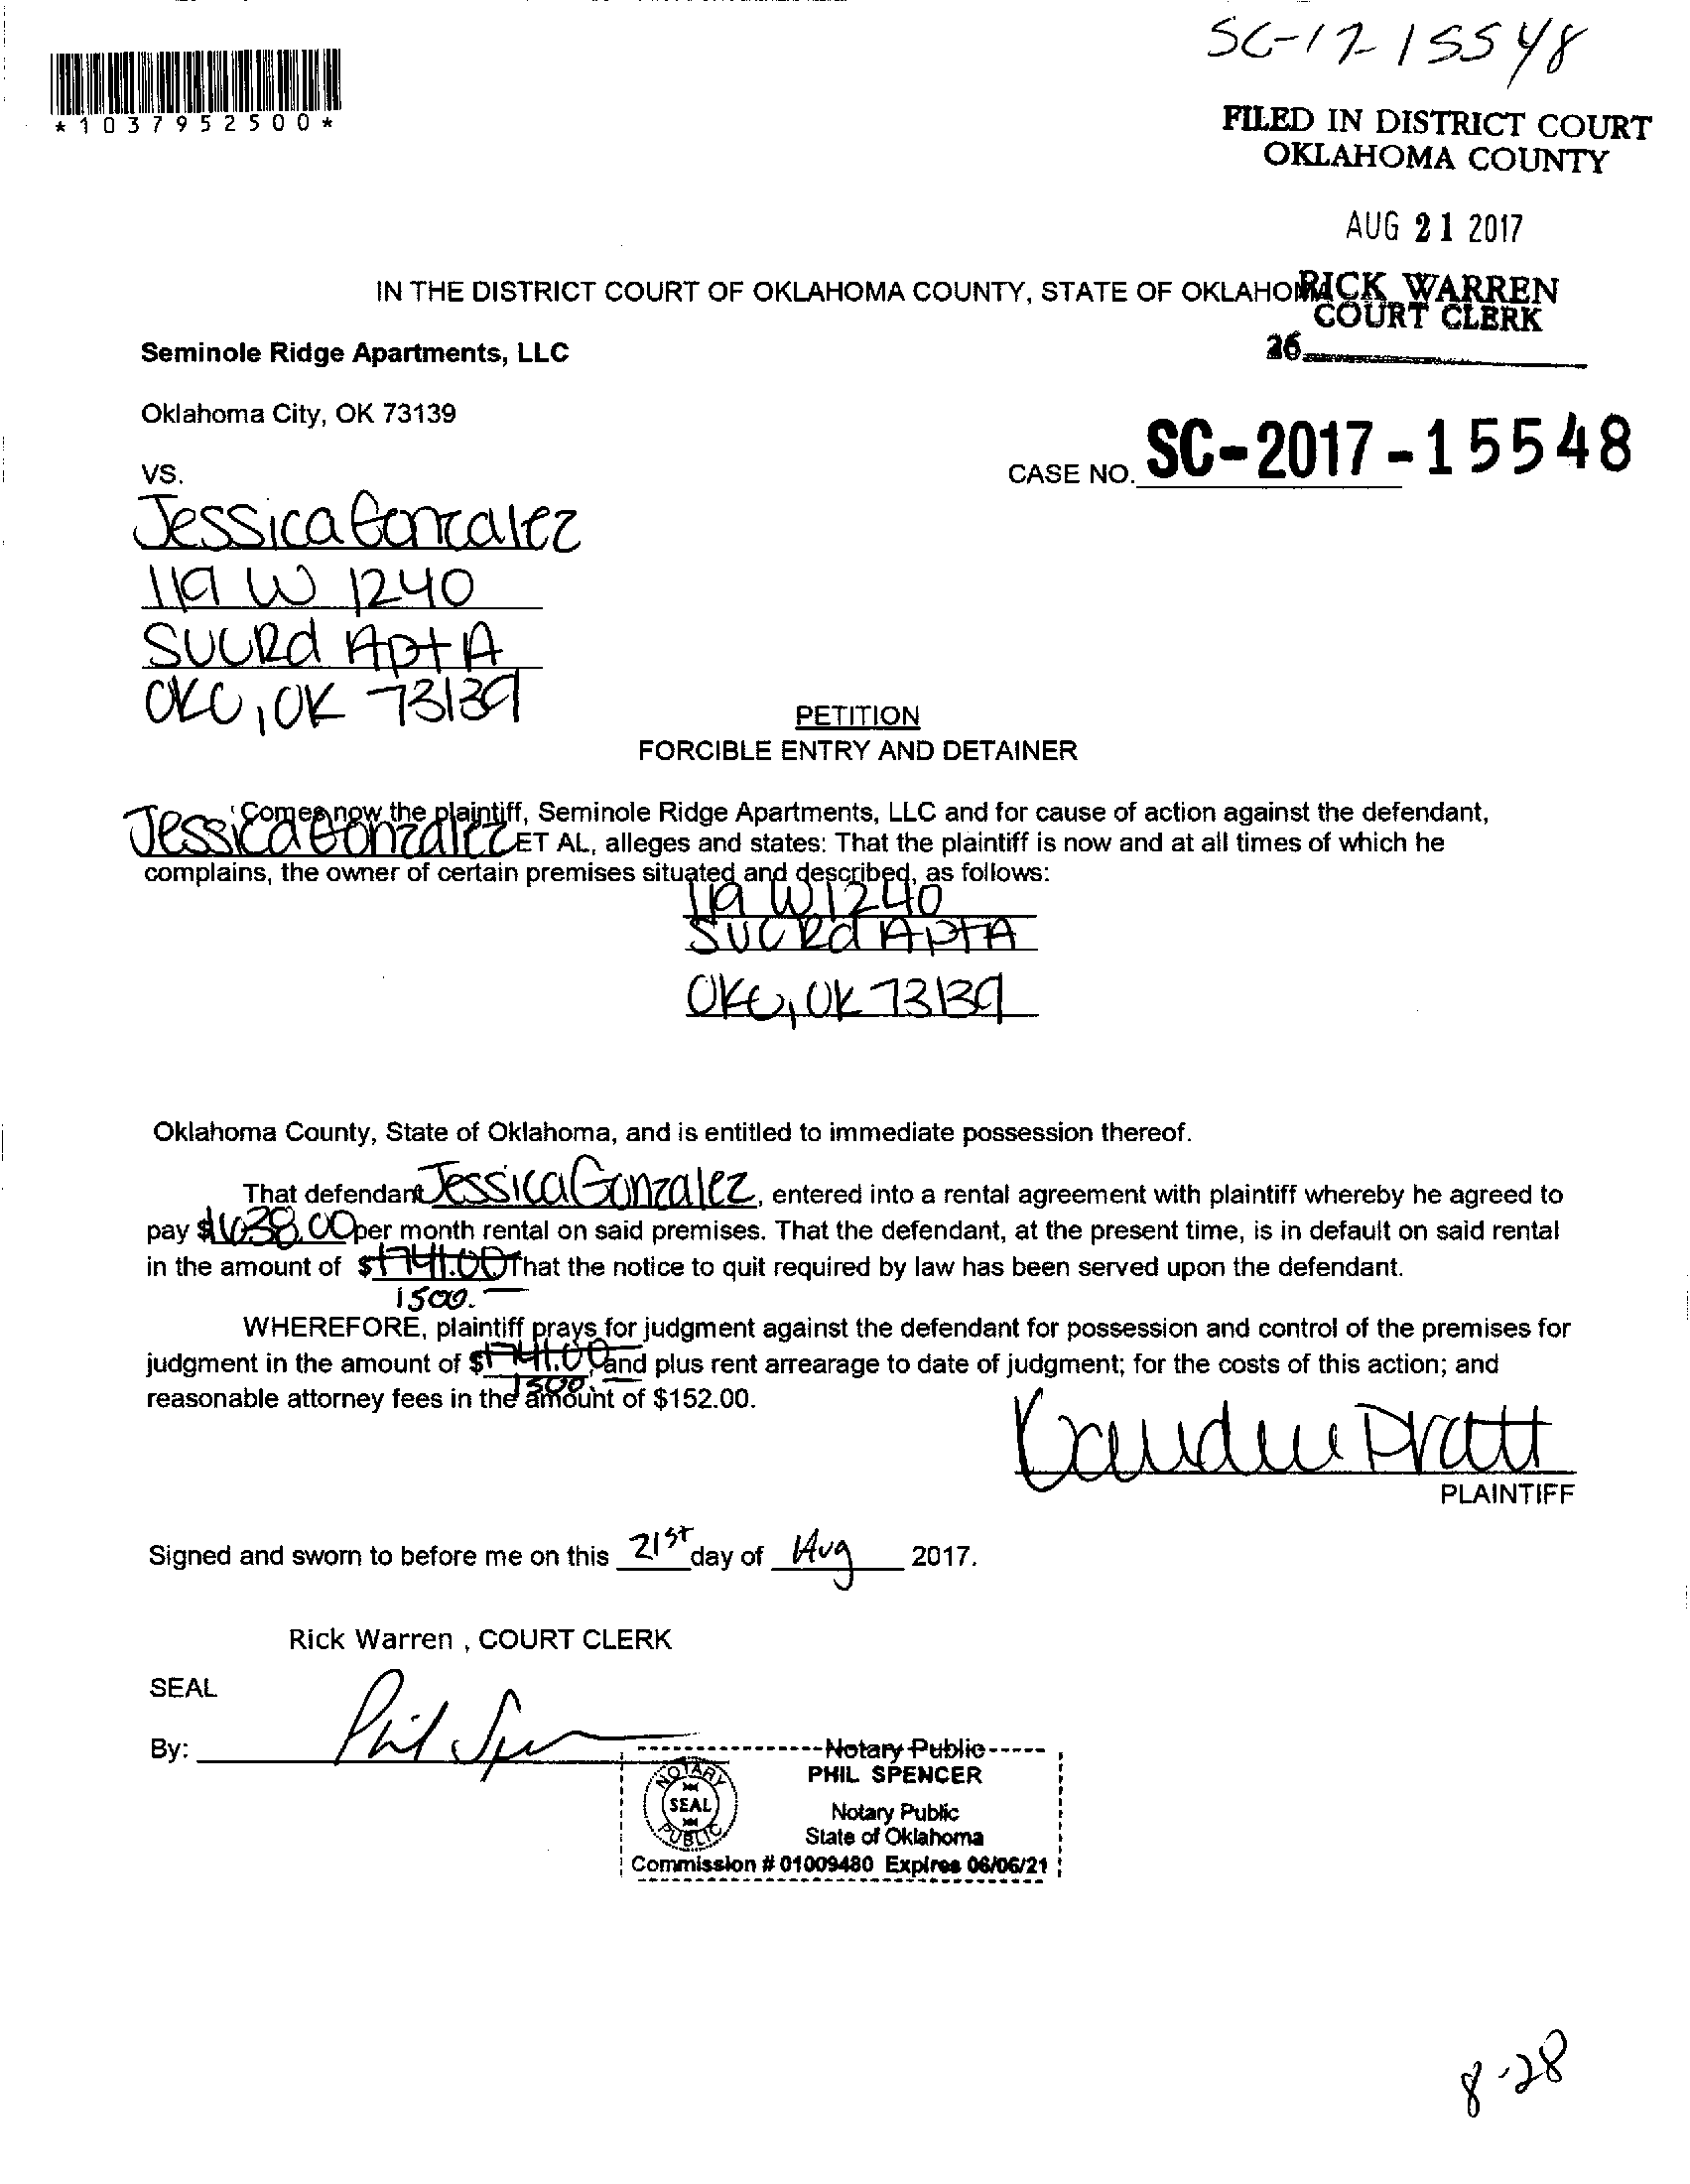 SC-17-15548
*1037952500*
FILED IN DISTRICT COURT
OKLAHOMA COUNTY
AUG 21 2017
IN THE DISTRICT COURT OF OKLAHOMA COUNTY, STATE OF OKLAHOMA
RICK WARREN
COURT CLERK
26
Seminole Ridge Apartments, LLC
Oklahoma City, OK 73139
VS.
CASE NO. SC-2017-15548
Jessica Gonzalez
119 W 1240
SW Rd Apt A
OKC, OK 73139
PETITION
FORCIBLE ENTRY AND DETAINER
Comes now the plaintiff, Seminole Ridge Apartments, LLC and for cause of action against the defendant,
Jessica Gonzalez ET AL, alleges and states: That the plaintiff is now and at all times of which he
complains, the owner of certain premises situated and described, as follows:
119 W 1240
Rd Apt A
OKC, OK 73139
Oklahoma County, State of Oklahoma, and is entitled to immediate possession thereof.
That defendant Jessica Gonzalez, entered into a rental agreement with plaintiff whereby he agreed to
pay $638.00 per month rental on said premises. That the defendant, at the present time, is in default on said rental
in the amount of $1741.00 That the notice to quit required by law has been served upon the defendant.
1500.—
WHEREFORE, plaintiff prays for judgment against the defendant for possession and control of the premises for
judgment in the amount of $1741.00 and plus rent arrearage to date of judgment; for the costs of this action; and
1500.—
reasonable attorney fees in the amount of $152.00.
Pratt
PLAINTIFF
Signed and sworn to before me on this 21st day of Aug 2017.
Rick Warren , COURT CLERK
SEAL
By: Phil Spencer
Notary Public
PHIL SPENCER
NOTARY SEAL PUBLIC
Notary Public
State of Oklahoma
Commission # 01009480 Expires 06/06/21
8-28